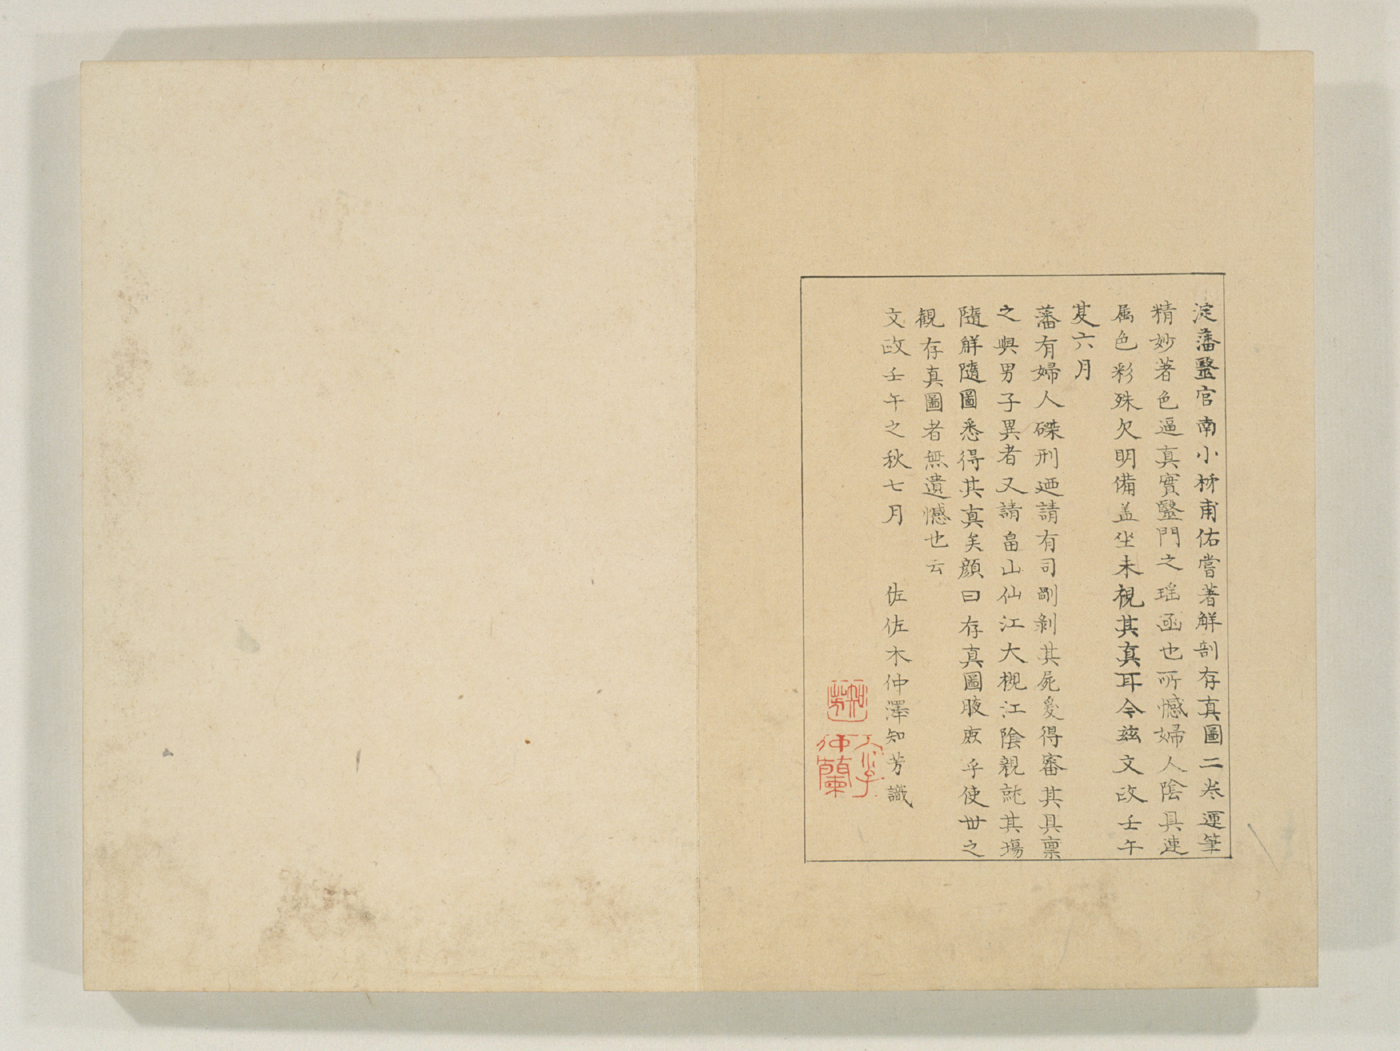 淀藩毉官南小柿甫佑嘗著解剖存真圖二卷運筆
精妙著色逼真實毉門之瑶函也所憾婦人陰具連
属色彩殊欠明備盖坐未視其真耳今玆文政壬午
夏六月
藩有婦人磔刑廼請有司剮剝其屍爰得審其具稟
之與男子異者又請畠山仙江大槻江陰親詑其場
隨觧隨圖悉得其真矣顏曰存真圖腋庶乎使世之
観存真圖者無遺憾也云
文政壬午之秋七月 佐佐木仲澤知芳識
仲蘭